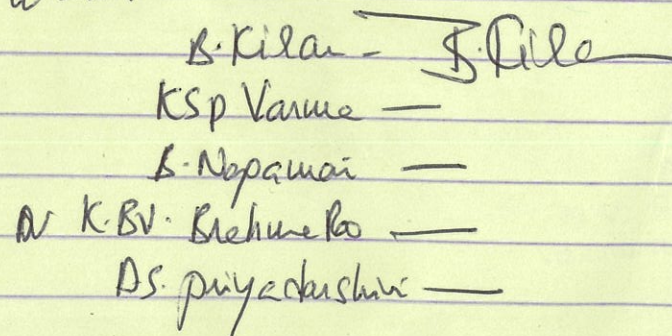 B. Kilan - B. Kila
KSP Varma —
B. Nopamai —
Dr K. BV. Brahma Rao —
DS. priyadarshini —